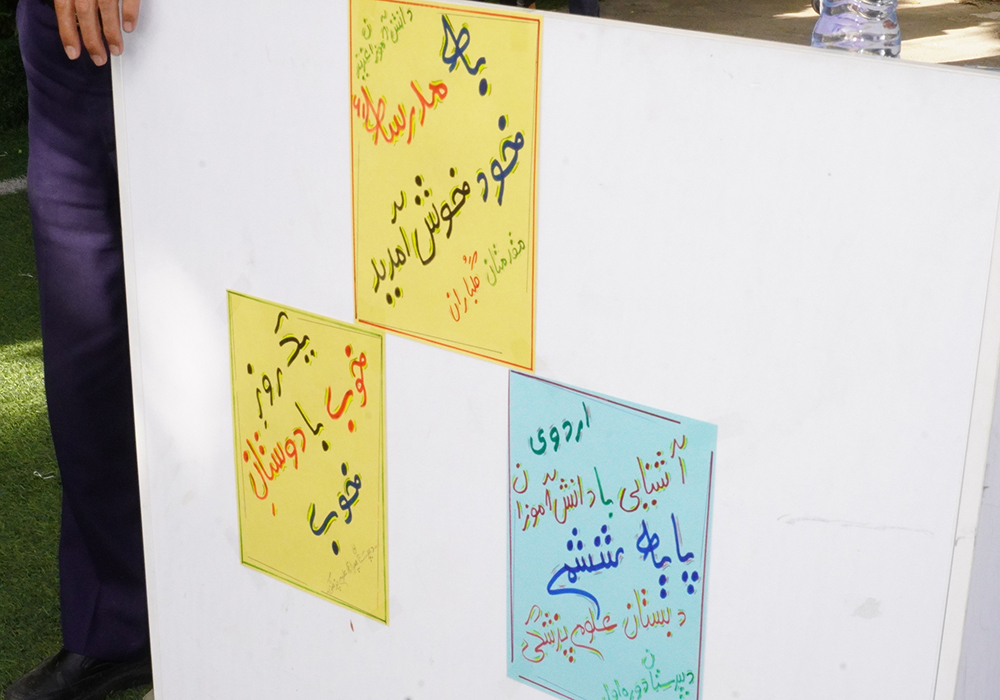 دانش آموزان عزیز
به
مدرسهٔ
خود
خوش آمدید
مقدمتان گلباران
یک روز
خوب با دوستان
خوب
اردوی
آشنایی با دانش آموزان
پایه ششم
دبستان علوم پزشکی
دبیرستان دوره اول